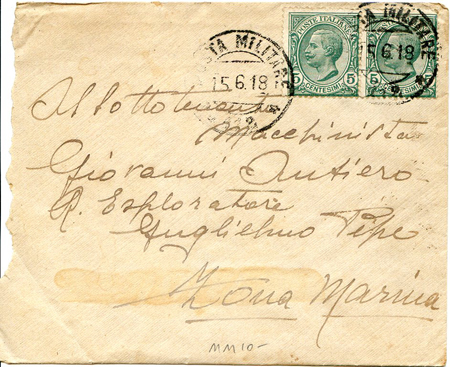 POSTE ITALIANE POSTE ITALIANE
5 CENTESIMI 5 5 CENTESIMI 5
POSTA MILITARE
15.6.18
POSTA MILITARE
15.6.18
Al Sottotenente
Macchinista
Giovanni Antiero
R. Esploratore
Guglielmo Pepe
Zona Marina
MM10-